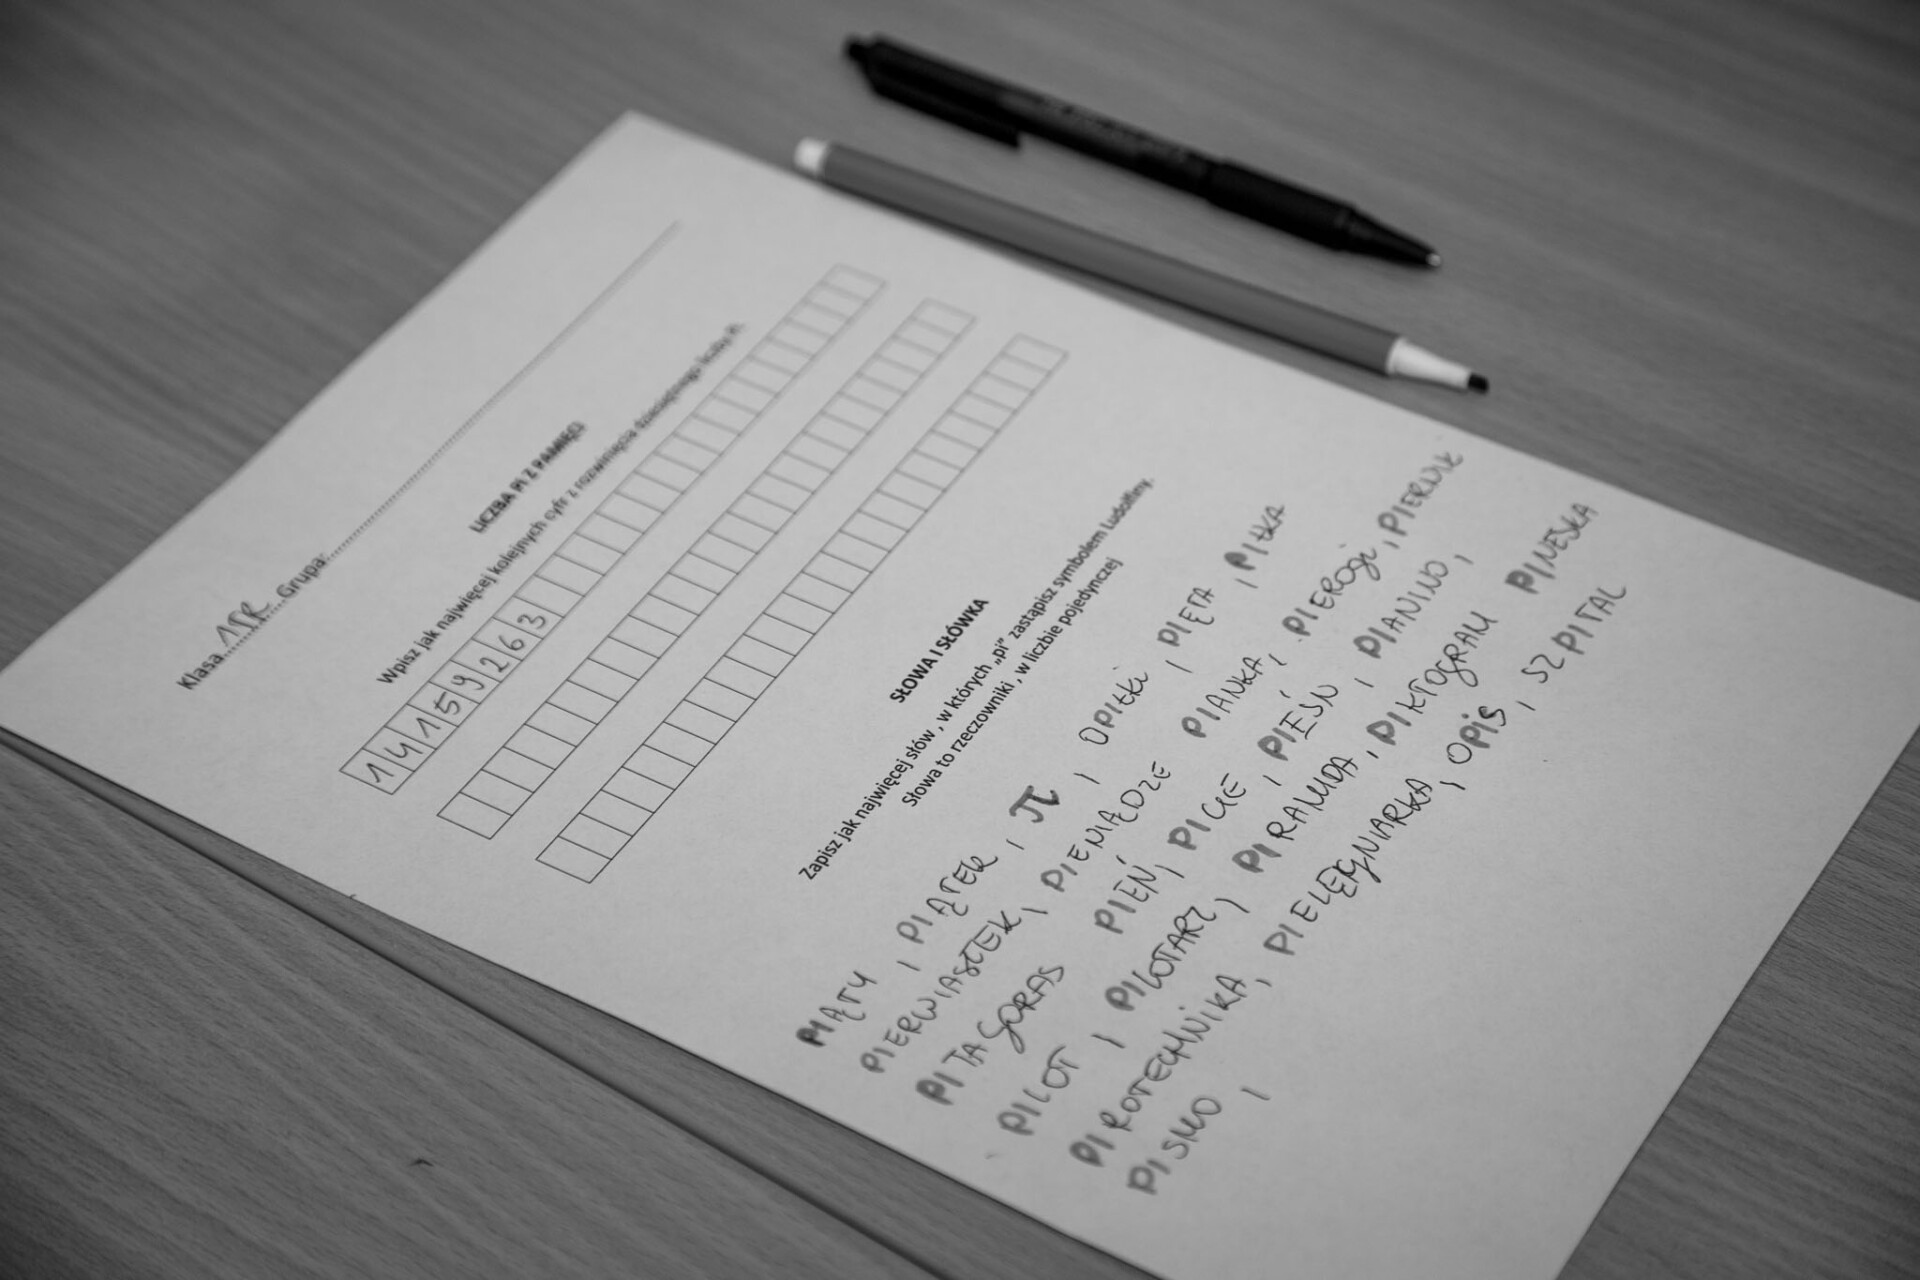 Klasa 1TR Grupa:
LICZBA PI Z PAMIĘCI
Wpisz jak najwięcej kolejnych cyfr z rozwinięcia dziesiętnego liczby π.
1 4 1 5 9 2 6 3
SŁOWA I SŁÓWKA
Zapisz jak najwięcej słów, w których „pi” zastąpisz symbolem Ludolfiny.
Słowa to rzeczowniki, w liczbie pojedynczej
PIĄTY, PIĄTEK, π, OPIŁKI, PIĘTA, PIŁKA
PIERWIASTEK, PIENIĄDZE PIANKA, PIEROGI, PIERNIK
PITAGORAS PIEŃ, PICIE, PIEŚŃ, PIANINO,
PILOT, PILOTARZ, PIRAMIDA, PIKTOGRAM PINESKA
PIROTECHNIKA, PIELĘGNIARKA, OPIS, SZPITAL
PISMO,